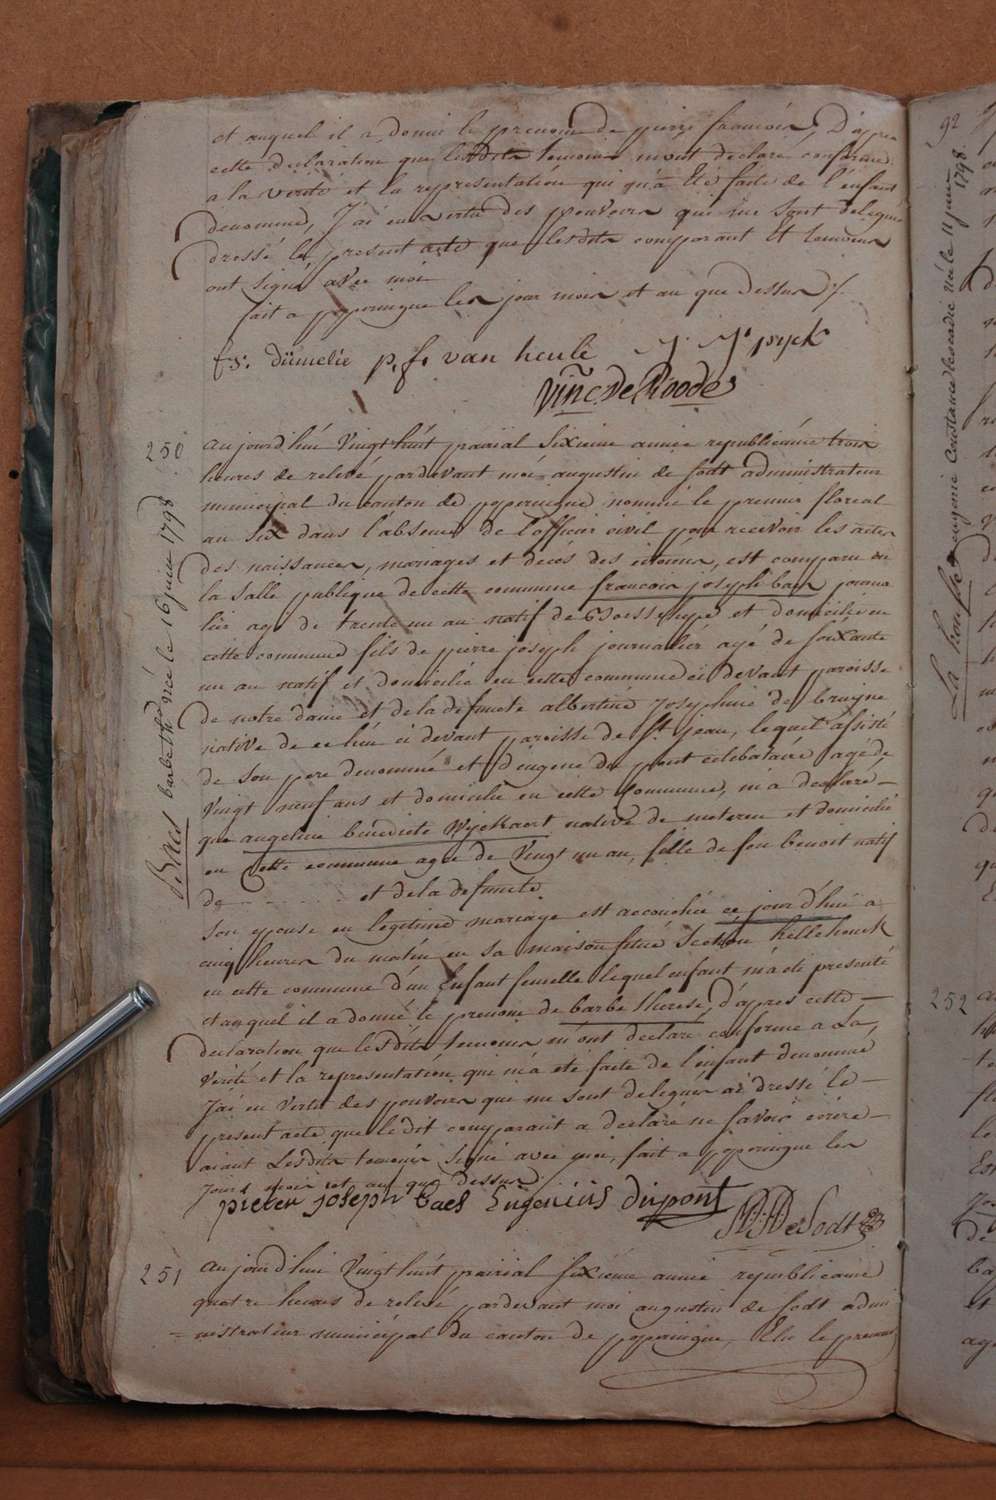 et auquel il a donné le prenom de pierre francois, D'apres
cette declaration que lesdits temoins m'ont declaré conforme
a la verité et la representation qui m'a été faite de l'enfant
denommé, J'ai en vertu des pouvoirs qui me sont delegués
dressé le present acte que lesdits comparant et temoins
ont signé avec moi
fait a poperingue les jour mois et an que dessus ./.
fs: dumelie p. f. van heule J. J. pyck
Vinc. De Roode
250
Baes barbe th. née le 16 juin 1798
aujourd'hui Vingt huit prairial sixieme année republicaine trois
heures de relevé pardevant moi augustin de sodt administrateur
municipal du canton de poperingue nommé le premier floreal
an six dans l'absence de l'officier civil pour recevoir les actes
des naissances, mariages et décès des citoiens, est comparu en
la salle publique de cette commune francois joseph baes journa
lier agé de trente un an natif de Boesschepe et domicilié en
cette commune fils de pierre joseph journalier agé de soixante
un an natif et domicilié en cette commune ci devant paroisse
de notre dame et de la defuncte albertine Josephine de bruyne
native de ce lieu ci devant paroisse de St jean, lequel assisté
de son pere denommé et d'eugene du pont celebataire agé de
Vingt neuf ans et domicilié en cette Commune, m'a declaré
que angeline benedicte Wyckaert native de meteren et domicilié
en cette commune agée de Vingt un an, fille de feu benoit natif
de - - - - - et de la defuncte
son epouse en legitime mariage est accouchée ce jourd'hui a
cinq heures du matin en sa maison située Section hellehouck
en cette commune d'un Enfant femelle lequel enfant m'a été presenté
et auquel il a donné le prenom de barbe therese, d'apres cette
declaration que lesdits temoins m'ont declaré conforme a la
verité et la representation qui m'a été faite de l'enfant denommé
J'ai en vertu des pouvoirs qui me sont delegués dressé le
present acte que ledit comparant a declaré ne savoir ecrire
aiant Lesdits temoins signé avec moi, fait a poperingue les
jours mois et an que dessus
pieter Joseph baes Eugenius dupont
DeSodt
251
aujourd'hui Vingt huit prairial sixieme année republicaine
quatre heures de relevé pardevant moi augustin de sodt admi
= nistrateur municipal du canton de poperingue, Elu le premier
92
eugenie Constance née le 11 juin 1798
252